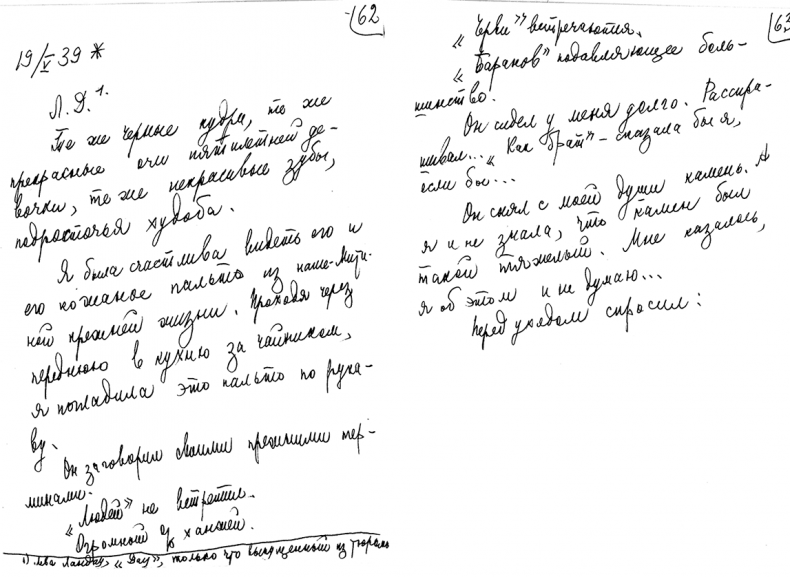 162
19/V 39 *
Л. Д. 1.
Те же черные кудри, те же
прекрасные очи пятилетней де-
вочки, те же некрасивые зубы,
подросточья худоба.
Я была счастлива видеть его и
его кожаное пальто из наше-Мити-
ной прежней жизни. Проходя через
переднюю в кухню за чайником,
я погладила это пальто по рука-
ву.
Он заговорил своими прежними тер-
минами.
«Людей» не встретил.
Огромный % ханжей.
1) Лева Ландау, «Дау», только что выпущенный из тюрьмы
163
«Черви» встречаются.
«Баранов» подавляющее боль-
шинство.
Он сидел у меня долго. Расспра-
шивал... "Как брат" – сказала бы я,
если бы...
Он снял с моей души камень. А
я и не знала, что камен был
такой тяжелый. Мне казалось,
я об этом и не думаю...
Перед уходом спросил: